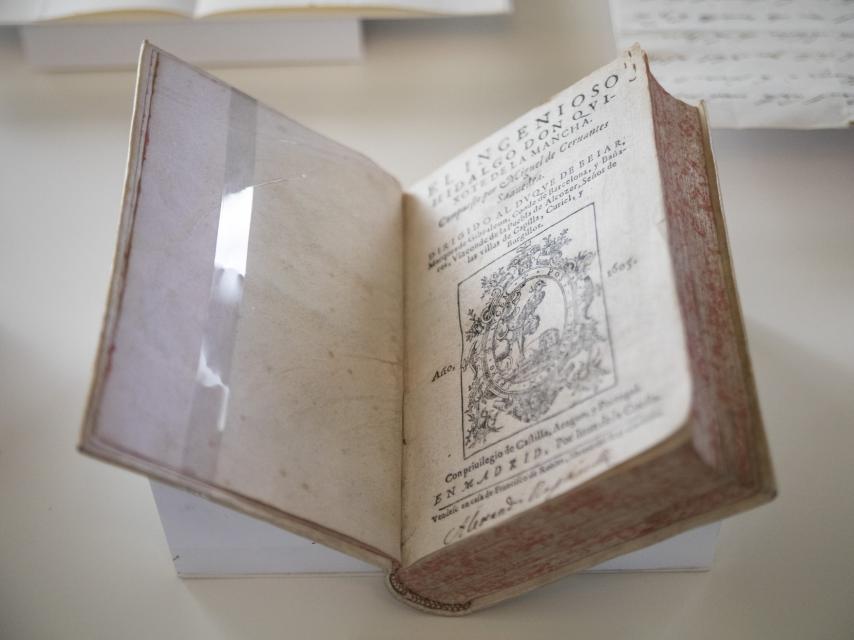 EL INGENIOSO
HIDALGO DON QVI-
XOTE DE LA MANCHA.
Compuesto por Miguel de Ceruantes
Saauedra.
DIRIGIDO AL DVQVE DE BEIAR,
Marques de Gibraleon, Conde de Barcelona, y Baña-
res, Vizconde de la Puebla de Alcozer, Señor de
las villas de Capilla, Curiel, y
Burgillos.
Año, 1605.
Con priuilegio de Castilla, Aragon, y Portugal.
EN MADRID, Por Iuan de la Cuesta.
Vendese en casa de Francisco de Robles,